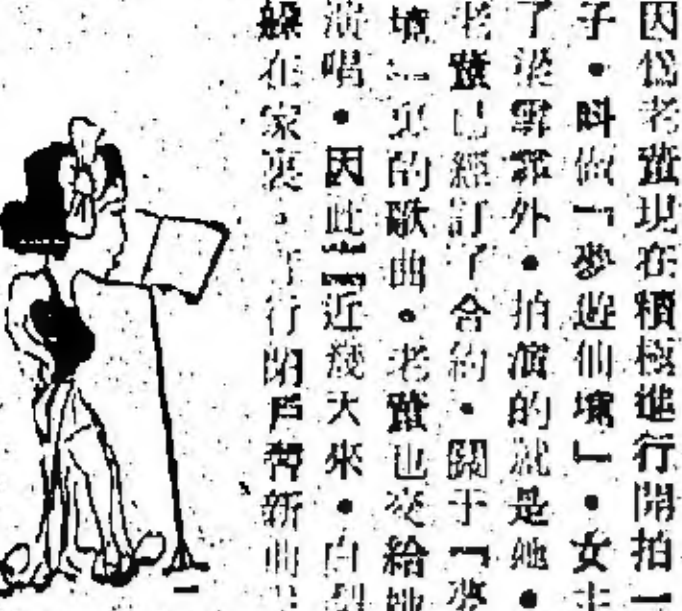 因爲老現在積極進行開拍一
子•叫做「夢遊仙境」•女主
了梁外•拍演的就是她•
老已經訂了合約•關于「夢
境」裏的歌曲•老也交給她
演唱•因此最近幾天來•白
躲在家裏•行閉戶習新曲